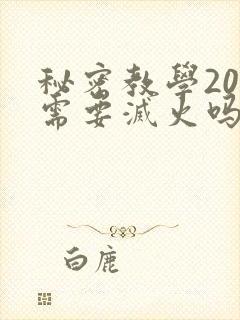 秘密教學20
需要滅火吗
白鹿